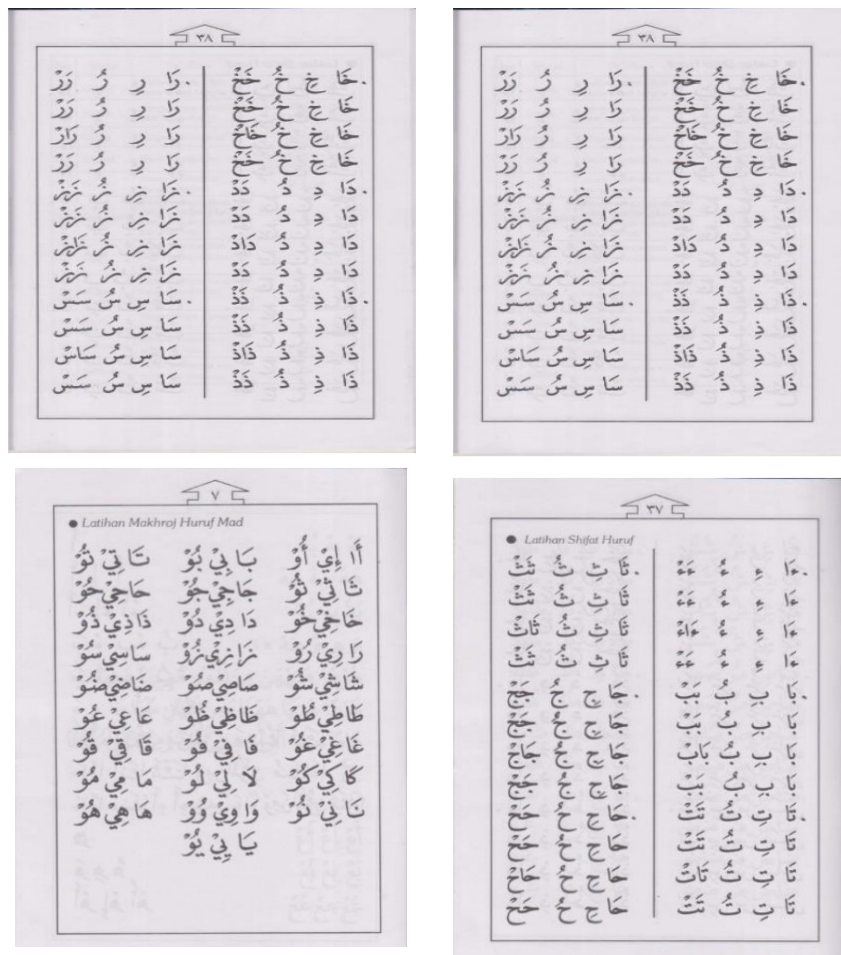 ٣٨
.خَا خِ خُ خَخْ
خَا خِ خُ خَخْ
خَا خِ خُ خَاخْ
خَا خِ خُ خَخْ
.دَا دِ دُ دَدْ
دَا دِ دُ دَدْ
دَا دِ دُ دَادْ
دَا دِ دُ دَدْ
.ذَا ذِ ذُ ذَذْ
ذَا ذِ ذُ ذَذْ
ذَا ذِ ذُ ذَاذْ
ذَا ذِ ذُ ذَذْ
.رَا رِ رُ رَرْ
رَا رِ رُ رَرْ
رَا رِ رُ رَارْ
رَا رِ رُ رَرْ
.زَا زِ زُ زَزْ
زَا زِ زُ زَزْ
زَا زِ زُ زَازْ
زَا زِ زُ زَزْ
.سَا سِ سُ سَسْ
سَا سِ سُ سَسْ
سَا سِ سُ سَاسْ
سَا سِ سُ سَسْ
٣٨
.خَا خِ خُ خَخْ
خَا خِ خُ خَخْ
خَا خِ خُ خَاخْ
خَا خِ خُ خَخْ
.دَا دِ دُ دَدْ
دَا دِ دُ دَدْ
دَا دِ دُ دَادْ
دَا دِ دُ دَدْ
.ذَا ذِ ذُ ذَذْ
ذَا ذِ ذُ ذَذْ
ذَا ذِ ذُ ذَاذْ
ذَا ذِ ذُ ذَذْ
.رَا رِ رُ رَرْ
رَا رِ رُ رَرْ
رَا رِ رُ رَارْ
رَا رِ رُ رَرْ
.زَا زِ زُ زَزْ
زَا زِ زُ زَزْ
زَا زِ زُ زَازْ
زَا زِ زُ زَزْ
.سَا سِ سُ سَسْ
سَا سِ سُ سَسْ
سَا سِ سُ سَاسْ
سَا سِ سُ سَسْ
٧
● Latihan Makhroj Huruf Mad
أَا إِيْ أُوْ بَا بِيْ بُوْ تَا تِيْ تُوْ
ثَا ثِيْ ثُوْ جَا جِيْ جُوْ حَا حِيْ حُوْ
خَا خِيْ خُوْ دَا دِيْ دُوْ ذَا ذِيْ ذُوْ
رَا رِيْ رُوْ زَا زِيْ زُوْ سَا سِيْ سُوْ
شَا شِيْ شُوْ صَا صِيْ صُوْ ضَا ضِيْ ضُوْ
طَا طِيْ طُوْ ظَا ظِيْ ظُوْ عَا عِيْ عُوْ
غَا غِيْ غُوْ فَا فِيْ فُوْ قَا قِيْ قُوْ
كَا كِيْ كُوْ لَا لِيْ لُوْ مَا مِيْ مُوْ
نَا نِيْ نُوْ وَا وِيْ وُوْ هَا هِيْ هُوْ
يَا يِيْ يُوْ
٣٧
● Latihan Shifat Huruf
.ءَا ءِ ءُ ءَءْ
ءَا ءِ ءُ ءَءْ
ءَا ءِ ءُ ءَاءْ
ءَا ءِ ءُ ءَءْ
.بَا بِ بُ بَبْ
بَا بِ بُ بَبْ
بَا بِ بُ بَابْ
بَا بِ بُ بَبْ
.تَا تِ تُ تَتْ
تَا تِ تُ تَتْ
تَا تِ تُ تَاتْ
تَا تِ تُ تَتْ
.ثَا ثِ ثُ ثَثْ
ثَا ثِ ثُ ثَثْ
ثَا ثِ ثُ ثَاثْ
ثَا ثِ ثُ ثَثْ
.جَا جِ جُ جَجْ
جَا جِ جُ جَجْ
جَا جِ جُ جَاجْ
جَا جِ جُ جَجْ
.حَا حِ حُ حَحْ
حَا حِ حُ حَحْ
حَا حِ حُ حَاحْ
حَا حِ حُ حَحْ